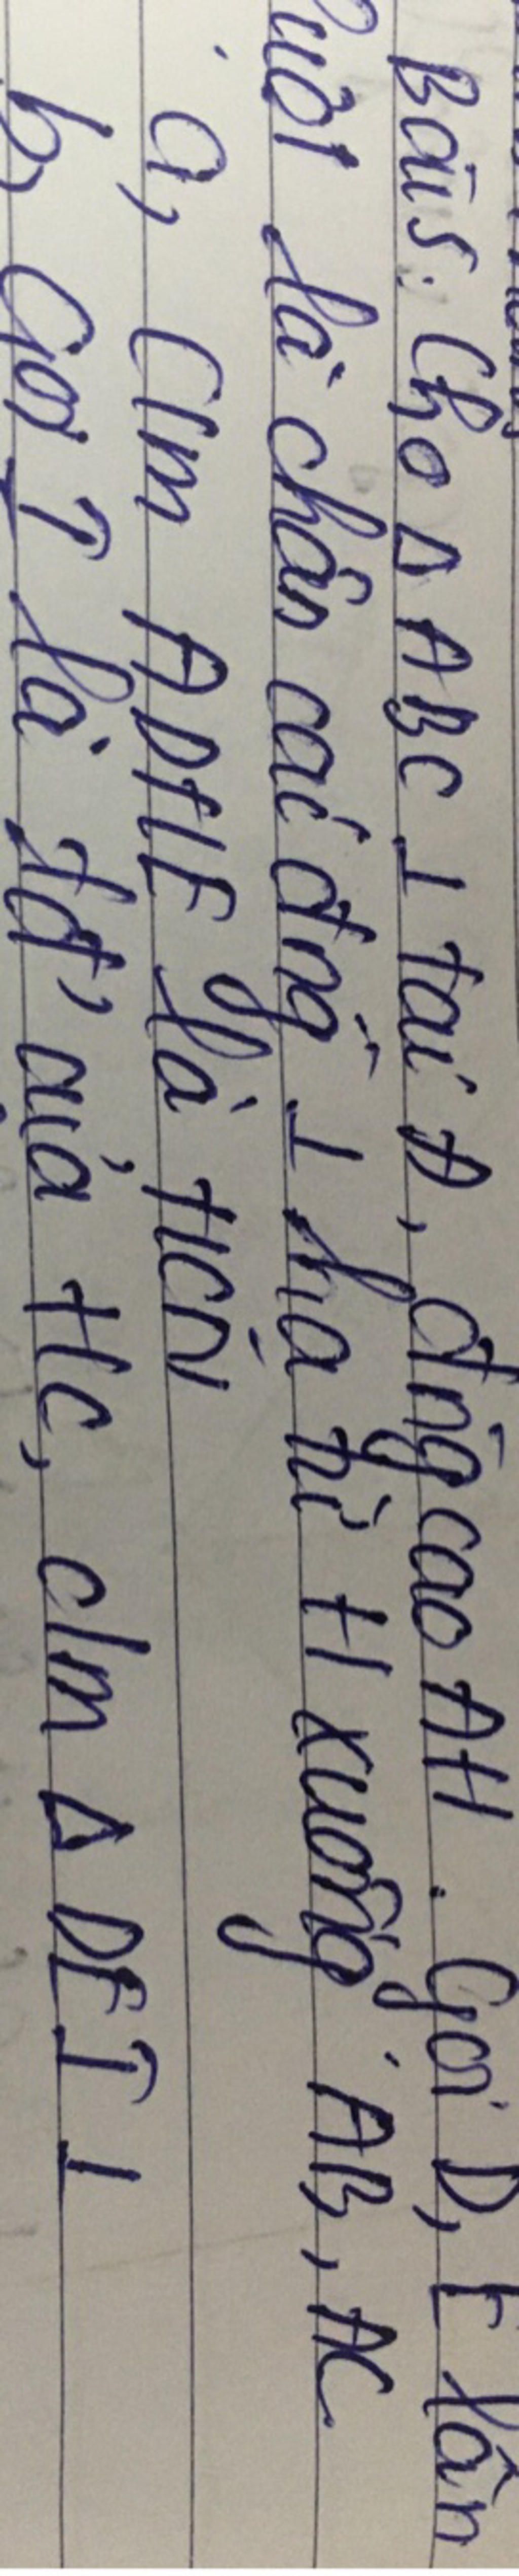 Bài 5: Cho Δ ABC ⊥ tại A, đng̀ cao AH. Gọi D, E lần
lượt là chân các đng̀ ⊥ hạ từ H xuống AB, AC
a, C/m ADHE là HCN
b, Gọi I là tđ' của HC, c/m Δ DEI ⊥